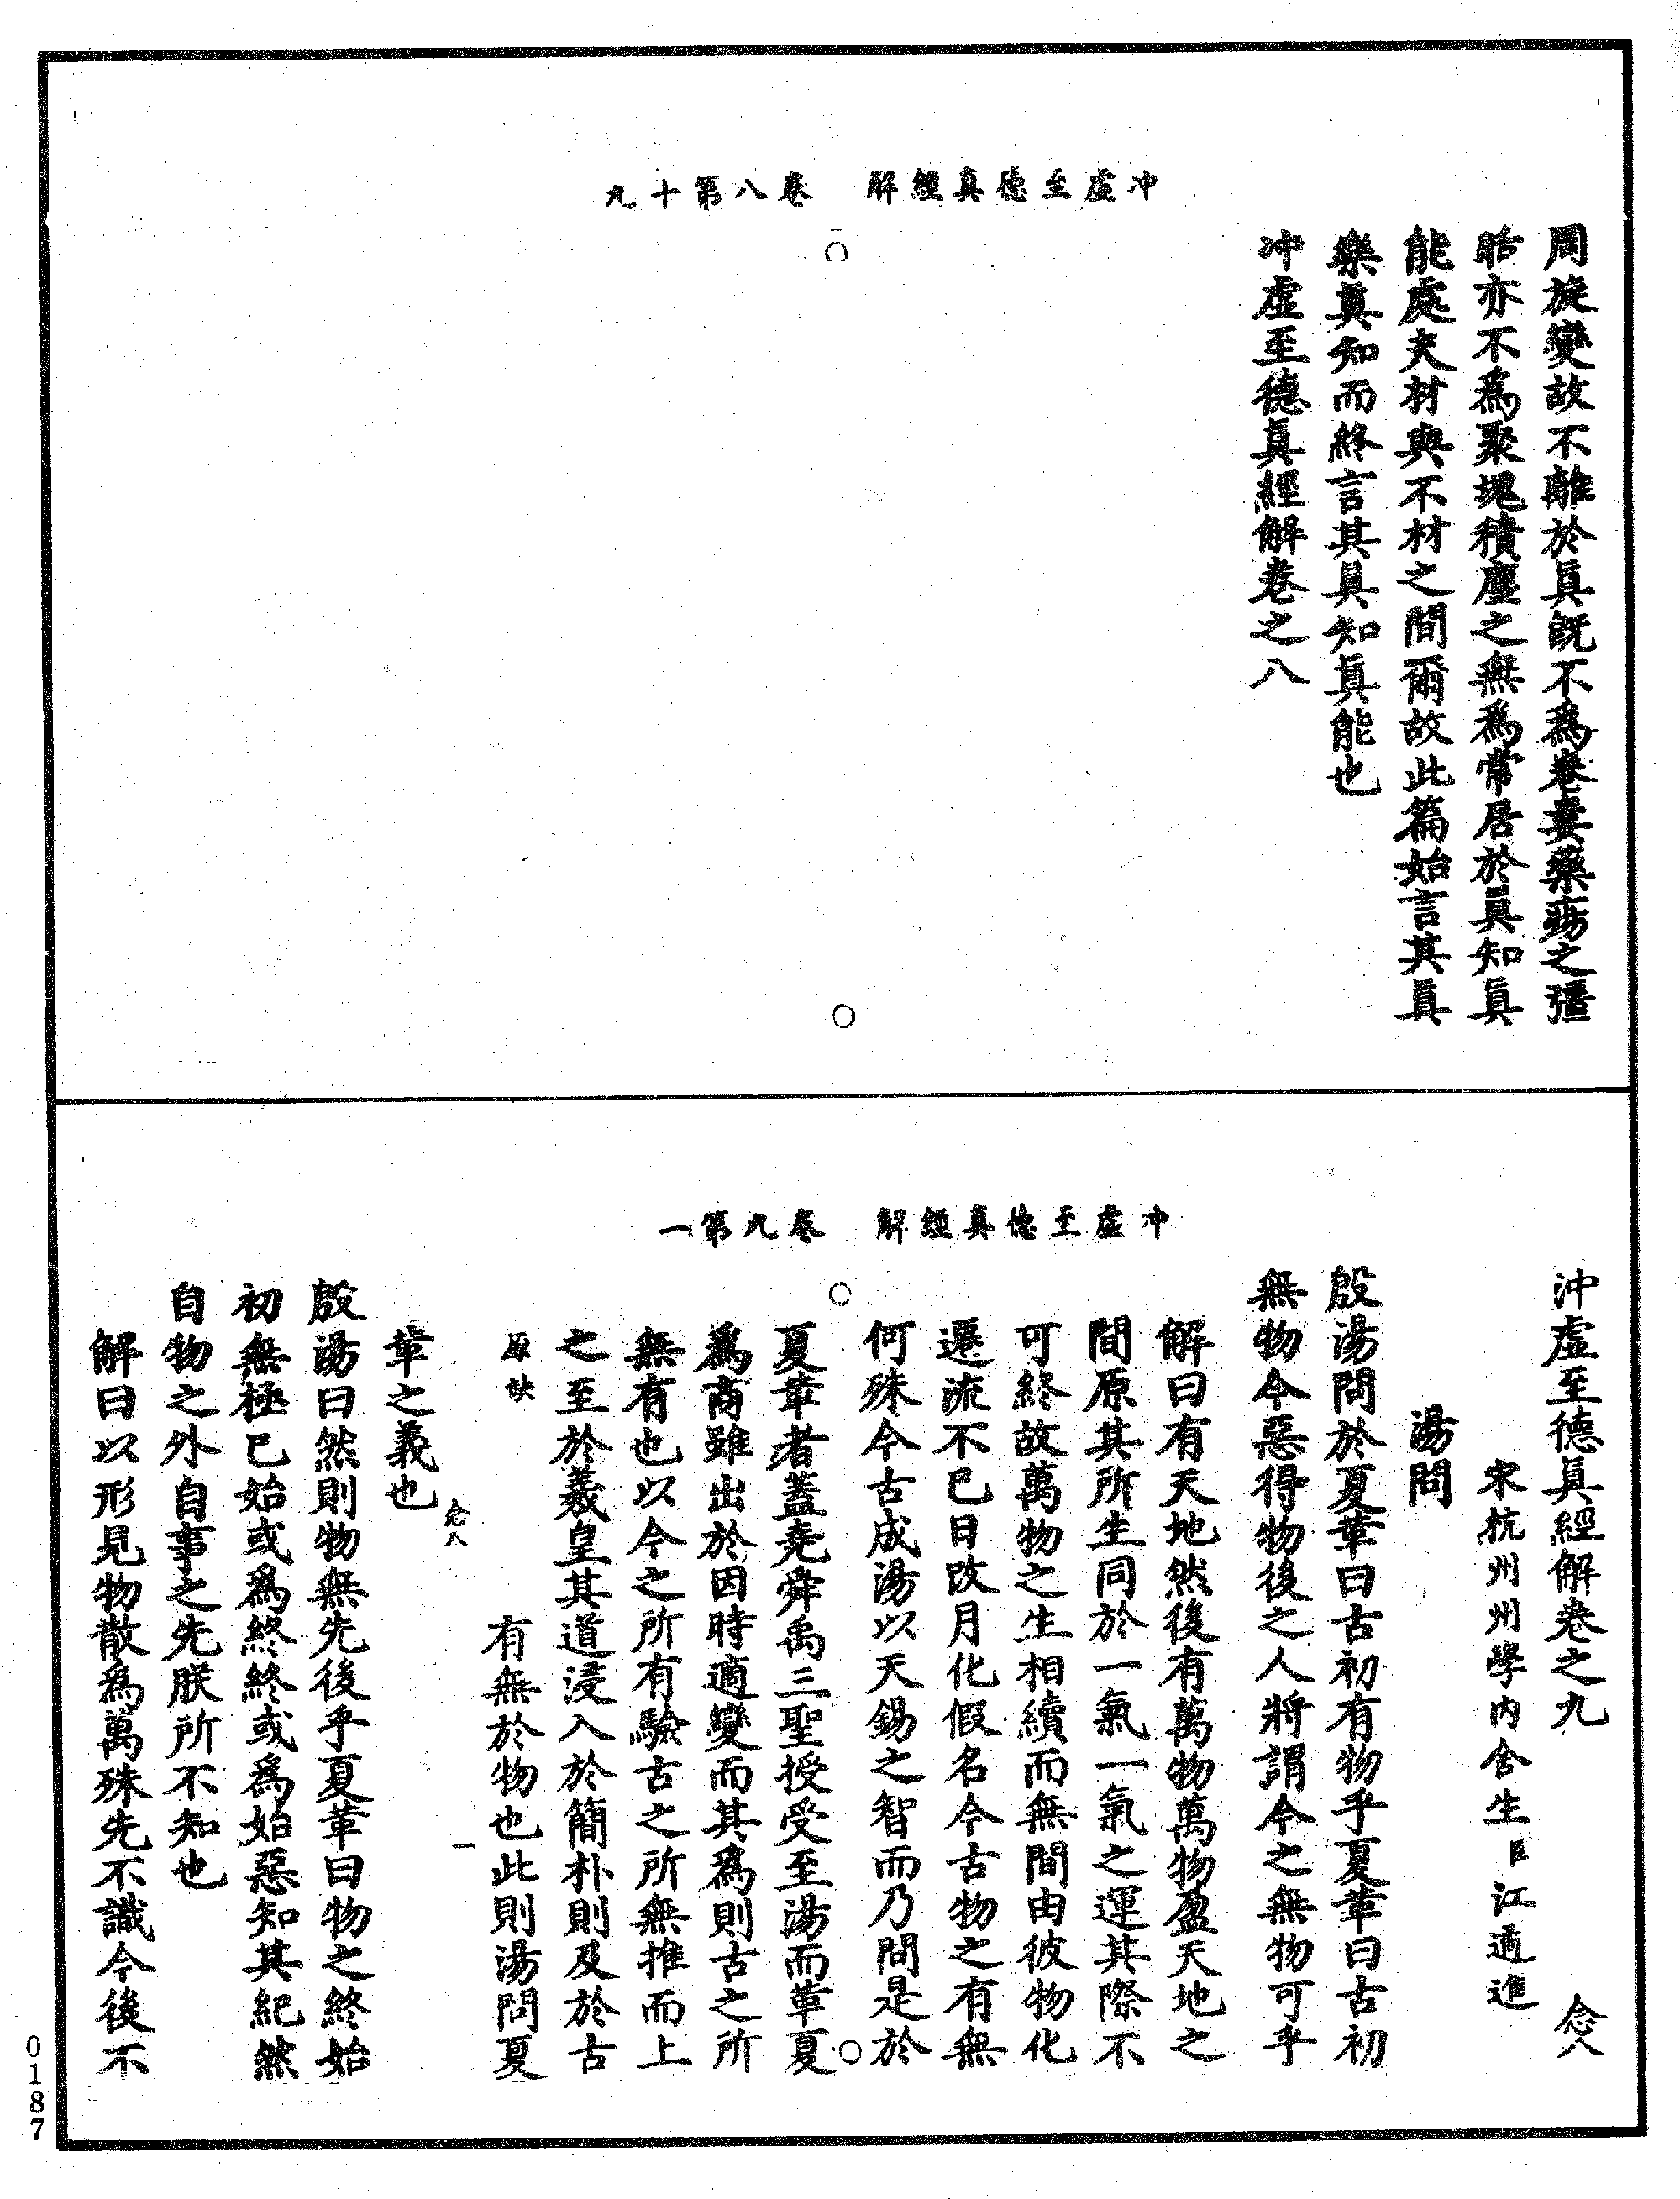 冲虛至德真經解　卷八第十九
周旋變故不離於眞旣不爲卷婁藥瘍之彊
䀨亦不爲聚塊積塵之無爲常居於眞知眞
能處夫材與不材之間爾故此篇始言其眞
樂眞知而終言其眞知眞能也
冲虛至德眞經解卷之八
冲虛至德真經解　卷九第一
沖虛至德眞經解卷之九　念八
宋杭州州學內舍生臣江遹進
湯問
殷湯問於夏革曰古初有物乎夏革曰古初
無物今惡得物後之人將謂今之無物可乎
解曰有天地然後有萬物萬物盈天地之
間原其所生同於一氣一氣之運其際不
可終故萬物之生相續而無間由彼物化
遷流不已日改月化假名今古物之有無
何殊今古成湯以天錫之智而乃問是於
夏革者蓋堯舜禹三聖授受至湯而革夏
爲商雖出於因時適變而其爲則古之所
無有也以今之所有驗古之所無推而上
之至於羲皇其道浸入於簡朴則及於古
原缺　有無於物也此則湯問夏
念八　一
革之義也
殷湯曰然則物無先後乎夏革曰物之終始
初無極已始或爲終終或爲始惡知其紀然
自物之外自事之先朕所不知也
解曰以形見物散爲萬殊先不識今後不
0187